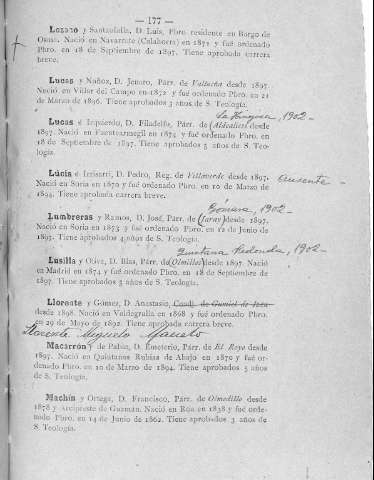 — 177 —
Lozano y Santaolalla, D. Luis, Pbro. residente en Burgo de
Osma. Nació en Navarrete (Calahorra) en 1871 y fué ordenado
Pbro. en 18 de Septiembre de 1897. Tiene aprobada carrera
breve.
Lucas y Núñoz, D. Jenaro, Párr. de Valtueña desde 1897.
Nació en Villar del Campo en 1872 y fué ordenado Pbro. en 21
de Marzo de 1896. Tiene aprobados 3 años de S. Teología.
1902
Lucas é Izquierdo, D. Filadelfo, Párr. de (Aldealices) desde
1897. Nació en Fuentearmegil en 1874 y fué ordenado Pbro. en
18 de Septiembre de 1897. Tiene aprobados 5 años de S. Teo-
logía.
Lucía é Irrisarri, D. Pedro, Reg. de Villaverde desde 1897. Ausente –
Nació en Soria en 1870 y fué ordenado Pbro. en 10 de Marzo de
1894. Tiene aprobada carrera breve.
Gómara, 1902 –
Lumbreras y Ramos, D. José, Párr. de (Jaray) desde 1897.
Nació en Soria en 1873 y fué ordenado Pbro. en 12 de Junio
de 1897. Tiene aprobados 4 años de S. Teología.
Quintana Redonda, 1902 –
Lusilla y Olive, D. Blas, Párr. de (Olmillos) desde 1897. Nació
en Madrid en 1874 y fué ordenado Pbro. en 18 de Septiembre de
1897. Tiene aprobados 3 años de S. Teología.
Llorente y Gómez, D. Anastasio, Coadj. de Gumiel de Izán
desde 1898. Nació en Valdegrulla en 1868 y fué ordenado Pbro.
en 29 de Mayo de 1892. Tiene aprobada carrera breve.
Llorente Miguelo Marcelo
Macarrón de Pablo, D. Emeterio, Párr. de El Royo desde
1897. Nació en Quintanas Rubias de Abajo en 1870 y fué or-
denado Pbro. en 10 de Marzo de 1894. Tiene aprobados 5 años
de S. Teología.
Machín y Ortega, D. Francisco, Párr. de Olmedillo desde
1878 y Arcipreste de Guzmán. Nació en Roa en 1838 y fué orde-
nado Pbro. en 14 de Junio de 1862. Tiene aprobados 3 años de
S. Teología.